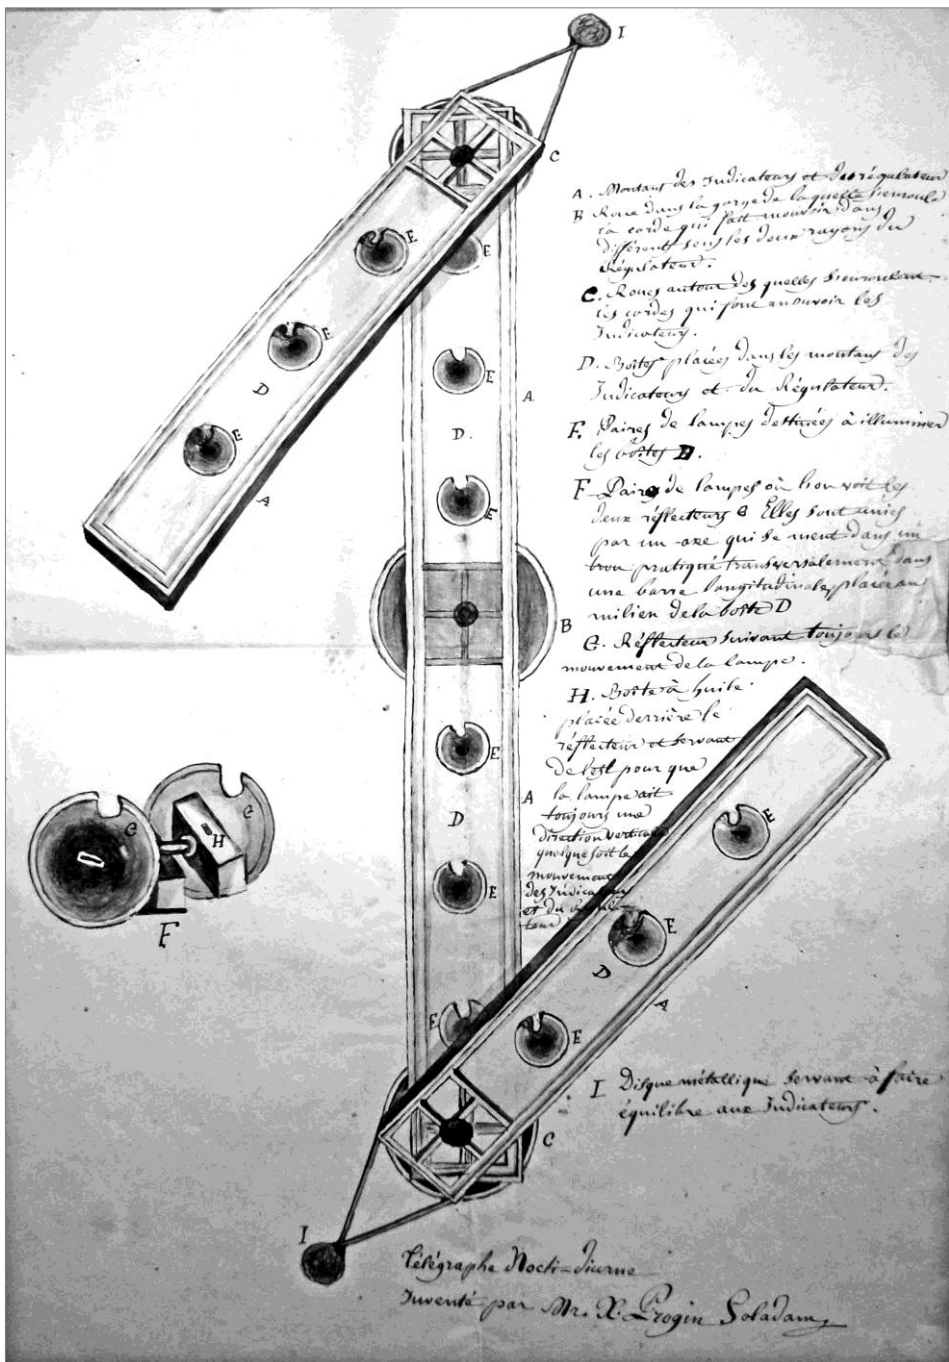 I
C
A. Montans des Indicateurs et du régulateur
B Roue dans la gorge de laquelle s'enroule
la corde qui fait mouvoir dans
différent sens les deux rayons du
Régulateur.
C. Roues autour des quelles s'enroulent
les cordes qui font mouvoir les
Indicateurs.
D. Boîtes placées dans les montans des
Indicateurs et du Régulateur.
E. Paires de lampes destinées à illuminer
les boîtes D.
F Paires de lampes où l'on voit les
deux réflecteurs G Elles sont unies
par un axe qui se meut dans un
trou pratiqué transversalement dans
une barre longitudinale placée au
milieu de la boîte D
G. Réflecteur suivant toujours le
mouvement de la lampe.
H. Boîte à huile
placée derrière le
réflecteur et servant
de lest pour que
la lampe ait
toujours une
direction verticale
quelque soit le
mouvement
des Indicateurs
et du
teur
E
E
E
E
E
D
A
A
D.
E
B
E
D
A
E
E
G
G
H
F
E
E
D
A
E
C
I
I Disque métallique servant à faire
équilibre aux Indicateurs.
Télégraphe Nocti-diurne
Inventé par Mr. X. Progin Soladam